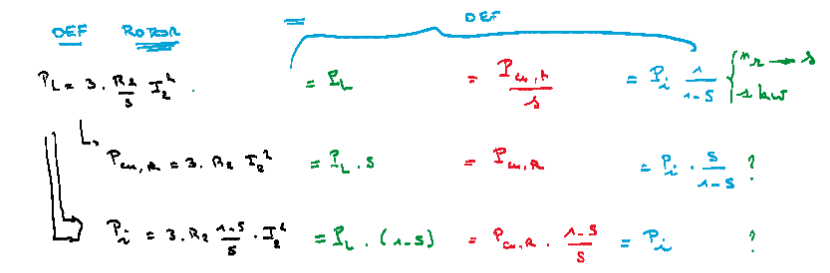 DEF ROTOR = DEF
P_L = 3 · R_2/s I_2^2 = P_L = P_cu,r/s = P_i 1/1-s { n_2 → s
1 kW
P_cu,R = 3 · R_2 I_2^2 = P_L · s = P_cu,R = P_i · s/1-s ?
P_i = 3 · R_2 1-s/s · I_2^2 = P_L · (1-s) = P_cu,R · 1-s/s = P_i ?